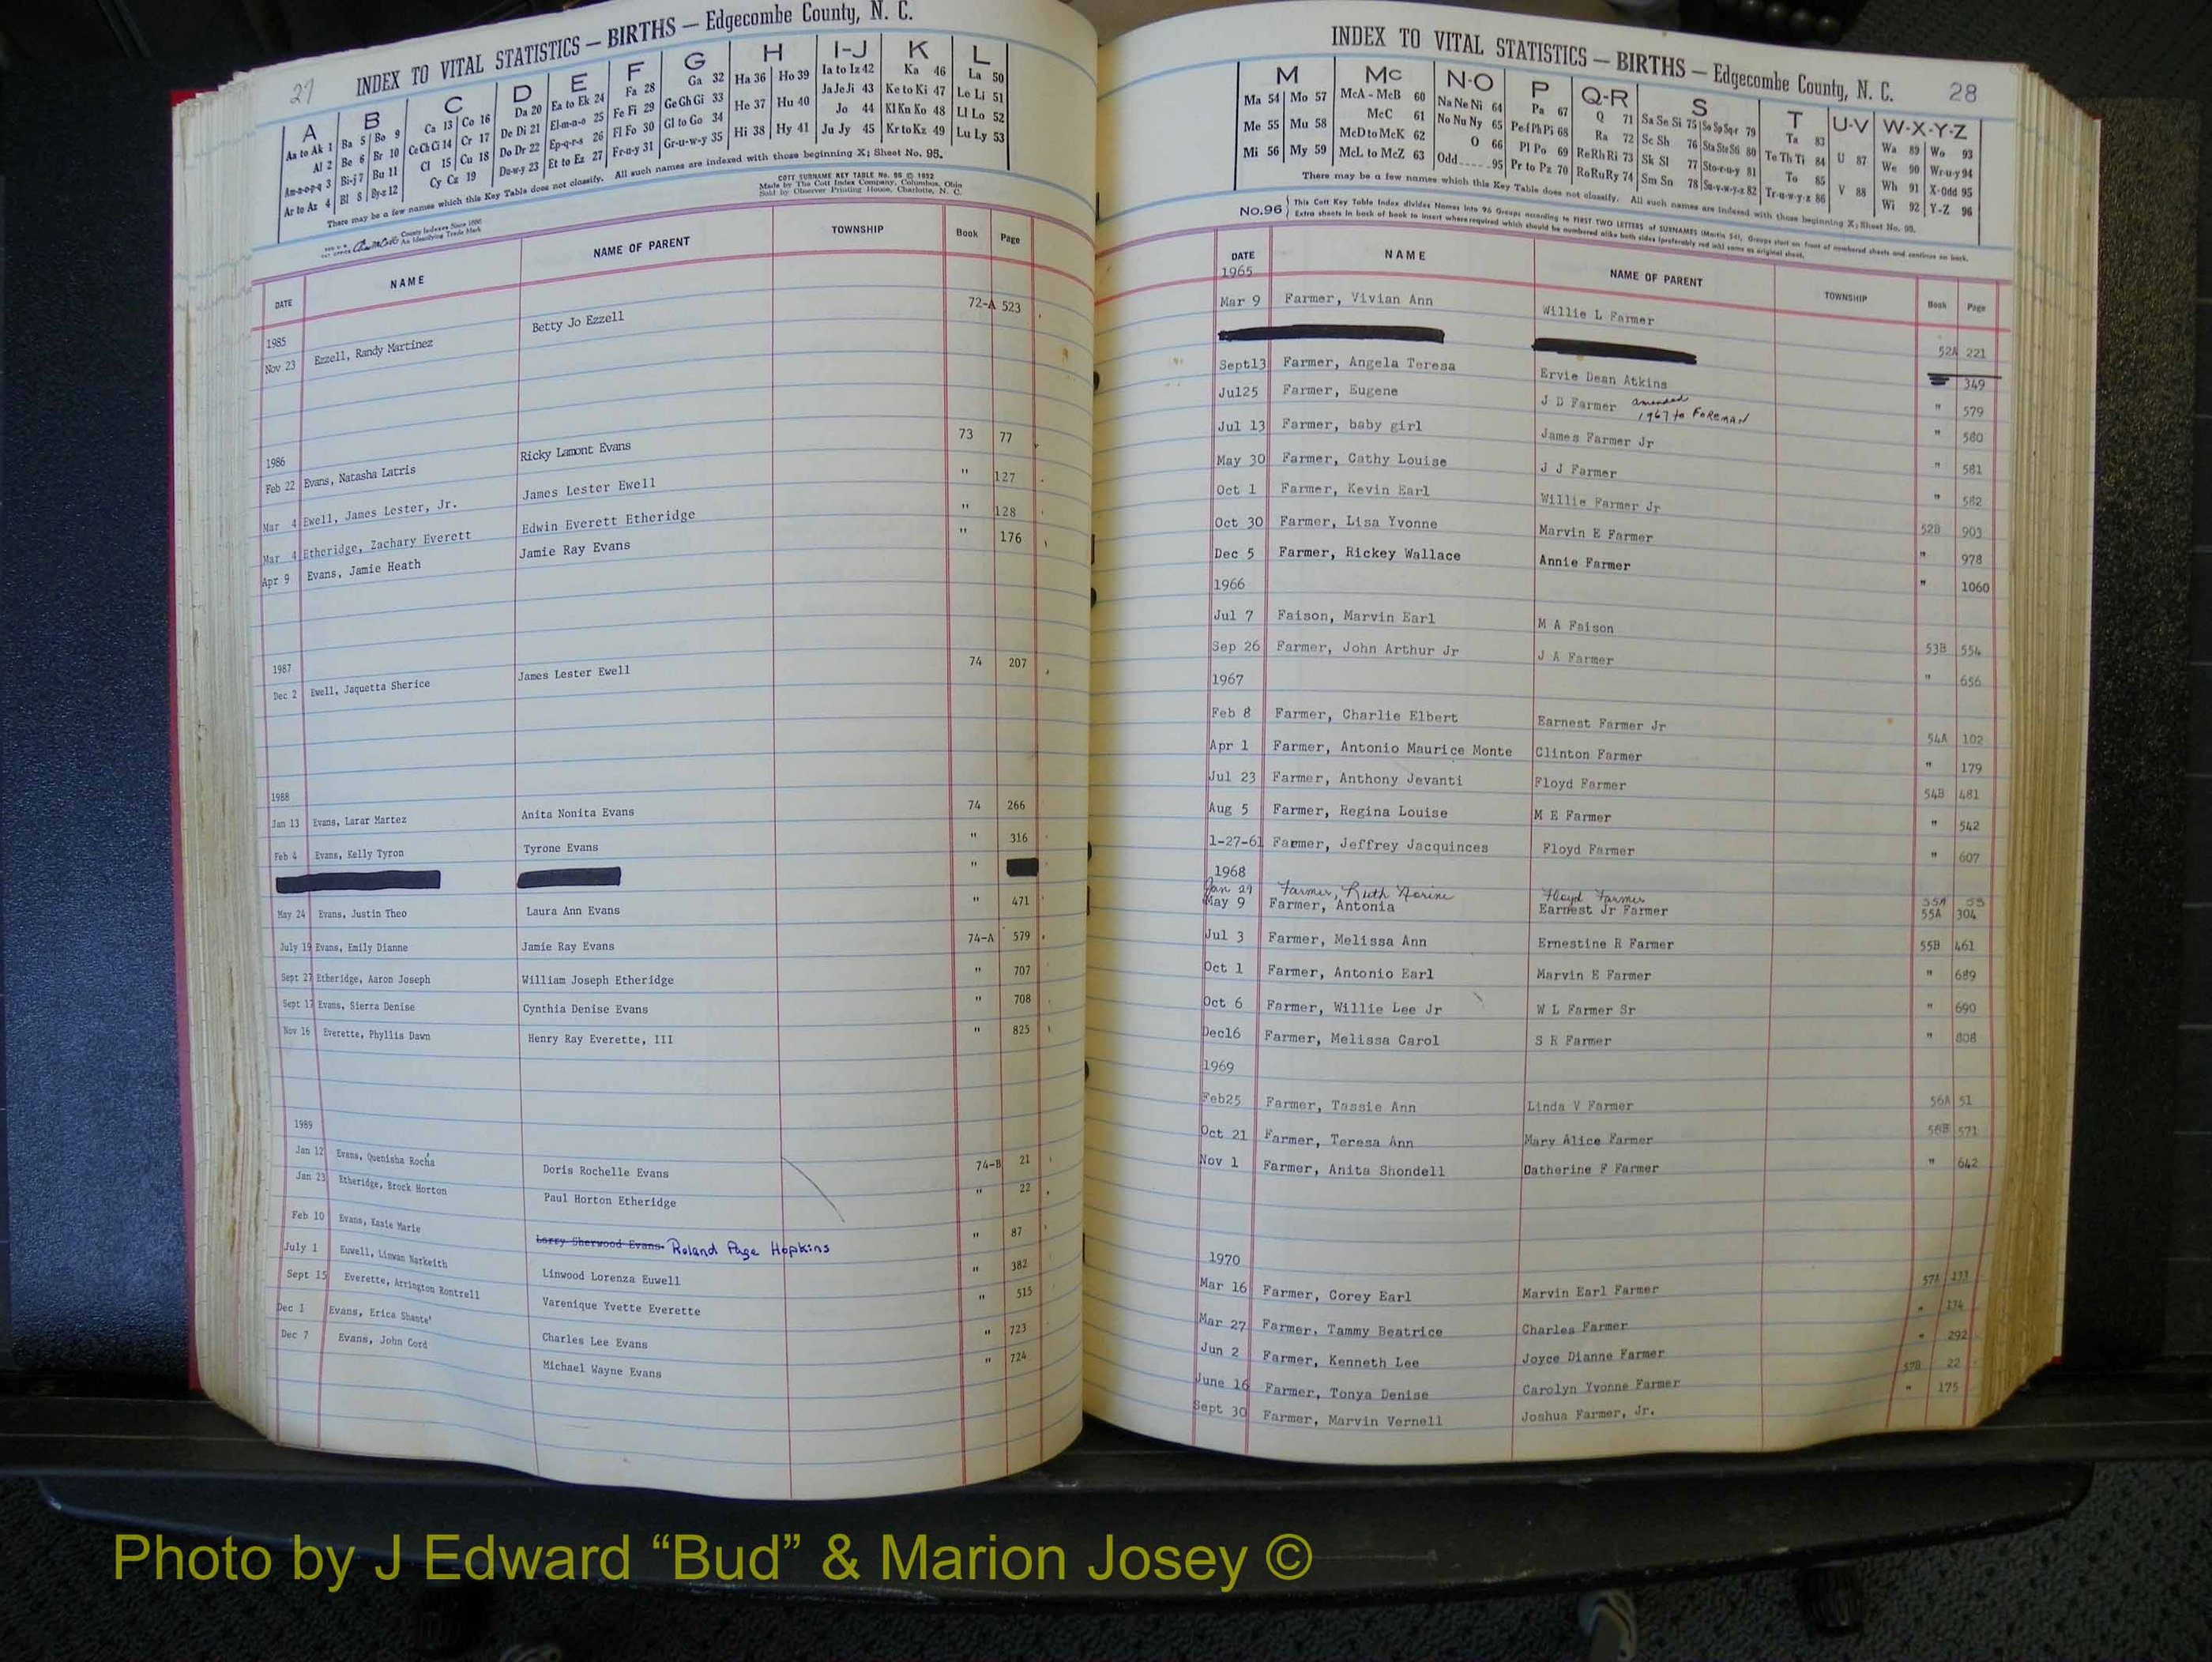 27
INDEX TO VITAL STATISTICS — BIRTHS — Edgecombe County, N. C.
A B C D E F G H I-J K L
Aa to Ak 1 Ba 5 Bo 9 Ca 13 Co 16 Da 20 Ea to Ek 24 Fa 28 Ga 32 Ha 36 Ho 39 Ia to Iz 42 Ka 46 La 50
Al 2 Be 6 Br 10 Ce Ch Ci 14 Cr 17 De Di 21 El-m-n-o 25 Fe Fi 29 Ge Gh Gi 33 He 37 Hu 40 Ja Je Ji 43 Ke to Ki 47 Le Li 51
Am-n-o-p-q 3 Bi-j 7 Bu 11 Cl 15 Cu 18 Do Dr 22 Ep-q-r-s 26 Fl Fo 30 Gl to Go 34 Hi 38 Hy 41 Jo 44 Kl Kn Ko 48 Ll Lo 52
Ar to Az 4 Bl 8 By-z 12 Cy Cz 19 Du-w-y 23 Et to Ez 27 Fr-u-y 31 Gr-u-w-y 35 Ju Jy 45 Kr to Kz 49 Lu Ly 53
There may be a few names which this Key Table does not classify. All such names are indexed with those beginning X; Sheet No. 95.
COTT SURNAME KEY TABLE No. 96 © 1932
Made by The Cott Index Company, Columbus, Ohio
Sold by Observer Printing House, Charlotte, N. C.
County Indexes Since 1888
An Identifying Trade Mark
DATE NAME NAME OF PARENT TOWNSHIP Book Page
1985
Nov 23 Ezzell, Randy Martinez Betty Jo Ezzell 72-A 523
1986
Feb 22 Evans, Natasha Latris Ricky Lamont Evans 73 77
Mar 4 Ewell, James Lester, Jr. James Lester Ewell " 127
Mar 4 Etheridge, Zachary Everett Edwin Everett Etheridge " 128
Apr 9 Evans, Jamie Heath Jamie Ray Evans " 176
1987
Dec 2 Ewell, Jaquetta Sherice James Lester Ewell 74 207
1988
Jan 13 Evans, Larar Martez Anita Nonita Evans 74 266
Feb 4 Evans, Kelly Tyron Tyrone Evans " 316
"
May 24 Evans, Justin Theo Laura Ann Evans " 471
July 19 Evans, Emily Dianne Jamie Ray Evans 74-A 579
Sept 27 Etheridge, Aaron Joseph William Joseph Etheridge " 707
Sept 17 Evans, Sierra Denise Cynthia Denise Evans " 708
Nov 16 Everette, Phyllis Dawn Henry Ray Everette, III " 825
1989
Jan 12 Evans, Quenisha Rocha Doris Rochelle Evans 74-B 21
Jan 23 Etheridge, Brock Horton Paul Horton Etheridge " 22
Feb 10 Evans, Kasie Marie Larry Sherwood Evans Roland Page Hopkins " 87
July 1 Euwell, Linwan Narkeith Linwood Lorenza Euwell " 382
Sept 15 Everette, Arrington Rontrell Varenique Yvette Everette " 515
Dec 1 Evans, Erica Shante' Charles Lee Evans " 723
Dec 7 Evans, John Cord Michael Wayne Evans " 724
INDEX TO VITAL STATISTICS — BIRTHS — Edgecombe County, N. C. 28
M Mc N-O P Q-R S T U-V W-X-Y-Z
Ma 54 Mo 57 McA - McB 60 Na Ne Ni 64 Pa 67 Q 71 Sa Se Si 75 So Sp Sq-r 79 Ta 83 Wa 89 Wo 93
Me 55 Mu 58 McC 61 No Nu Ny 65 Pe-f Ph Pi 68 Ra 72 Sc Sh 76 Sta Ste Sti 80 Te Th Ti 84 U 87 We 90 Wr-u-y 94
Mi 56 My 59 McD to McK 62 O 66 Pl Po 69 Re Rh Ri 73 Sk Sl 77 Sto-r-u-y 81 To 85 Wh 91 X-Odd 95
McL to McZ 63 Odd 95 Pr to Pz 70 Ro Ru Ry 74 Sm Sn 78 Su-v-w-y-z 82 Tr-u-w-y-z 86 V 88 Wi 92 Y-Z 96
There may be a few names which this Key Table does not classify. All such names are indexed with those beginning X; Sheet No. 95.
No. 96 This Cott Key Table Index divides Names into 96 Groups according to FIRST TWO LETTERS of SURNAMES (Martin 54), Groups start on front of numbered sheets and continue on back.
Extra sheets in back of book to insert where required which should be numbered alike both sides (preferably red ink) same as original sheet.
DATE NAME NAME OF PARENT TOWNSHIP Book Page
1965
Mar 9 Farmer, Vivian Ann Willie L Farmer 52A 221
349
Sept13 Farmer, Angela Teresa Ervie Dean Atkins " 579
Jul25 Farmer, Eugene J D Farmer amended 1967 to Foreman " 580
Jul 13 Farmer, baby girl James Farmer Jr " 581
May 30 Farmer, Cathy Louise J J Farmer " 582
Oct 1 Farmer, Kevin Earl Willie Farmer Jr 52B 903
Oct 30 Farmer, Lisa Yvonne Marvin E Farmer " 978
Dec 5 Farmer, Rickey Wallace Annie Farmer " 1060
1966
Jul 7 Faison, Marvin Earl M A Faison 53B 554
Sep 26 Farmer, John Arthur Jr J A Farmer " 656
1967
Feb 8 Farmer, Charlie Elbert Earnest Farmer Jr 54A 102
Apr 1 Farmer, Antonio Maurice Monte Clinton Farmer " 179
Jul 23 Farmer, Anthony Jevanti Floyd Farmer 54B 481
Aug 5 Farmer, Regina Louise M E Farmer " 542
1-27-61 Farmer, Jeffrey Jacquinces Floyd Farmer " 607
1968
Jan 29 Farmer, Ruth Norine Floyd Farmer 55A 55
May 9 Farmer, Antonia Earnest Jr Farmer 55A 304
Jul 3 Farmer, Melissa Ann Ernestine R Farmer 55B 461
Oct 1 Farmer, Antonio Earl Marvin E Farmer " 689
Oct 6 Farmer, Willie Lee Jr W L Farmer Sr " 690
Dec16 Farmer, Melissa Carol S R Farmer " 808
1969
Feb25 Farmer, Tassie Ann Linda V Farmer 56A 51
Oct 21 Farmer, Teresa Ann Mary Alice Farmer 56B 571
Nov 1 Farmer, Anita Shondell Catherine F Farmer " 642
1970
Mar 16 Farmer, Corey Earl Marvin Earl Farmer 57A 233
Mar 27 Farmer, Tammy Beatrice Charles Farmer " 234
Jun 2 Farmer, Kenneth Lee Joyce Dianne Farmer " 292
June 16 Farmer, Tonya Denise Carolyn Yvonne Farmer 57B 22
Sept 30 Farmer, Marvin Vernell Joshua Farmer, Jr. " 175
Photo by J Edward “Bud” & Marion Josey ©